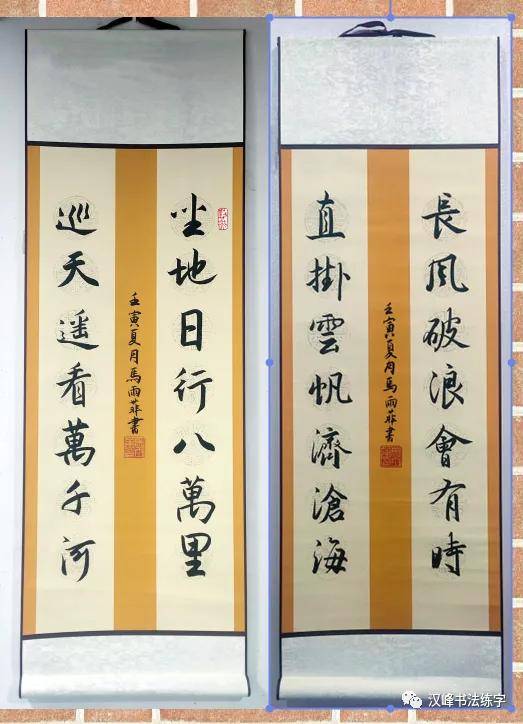 坐地日行八萬里
巡天遥看萬千河
壬寅夏月馬雨菲書
長風破浪會有時
直掛雲帆濟滄海
壬寅夏月馬雨菲書
汉峰书法练字